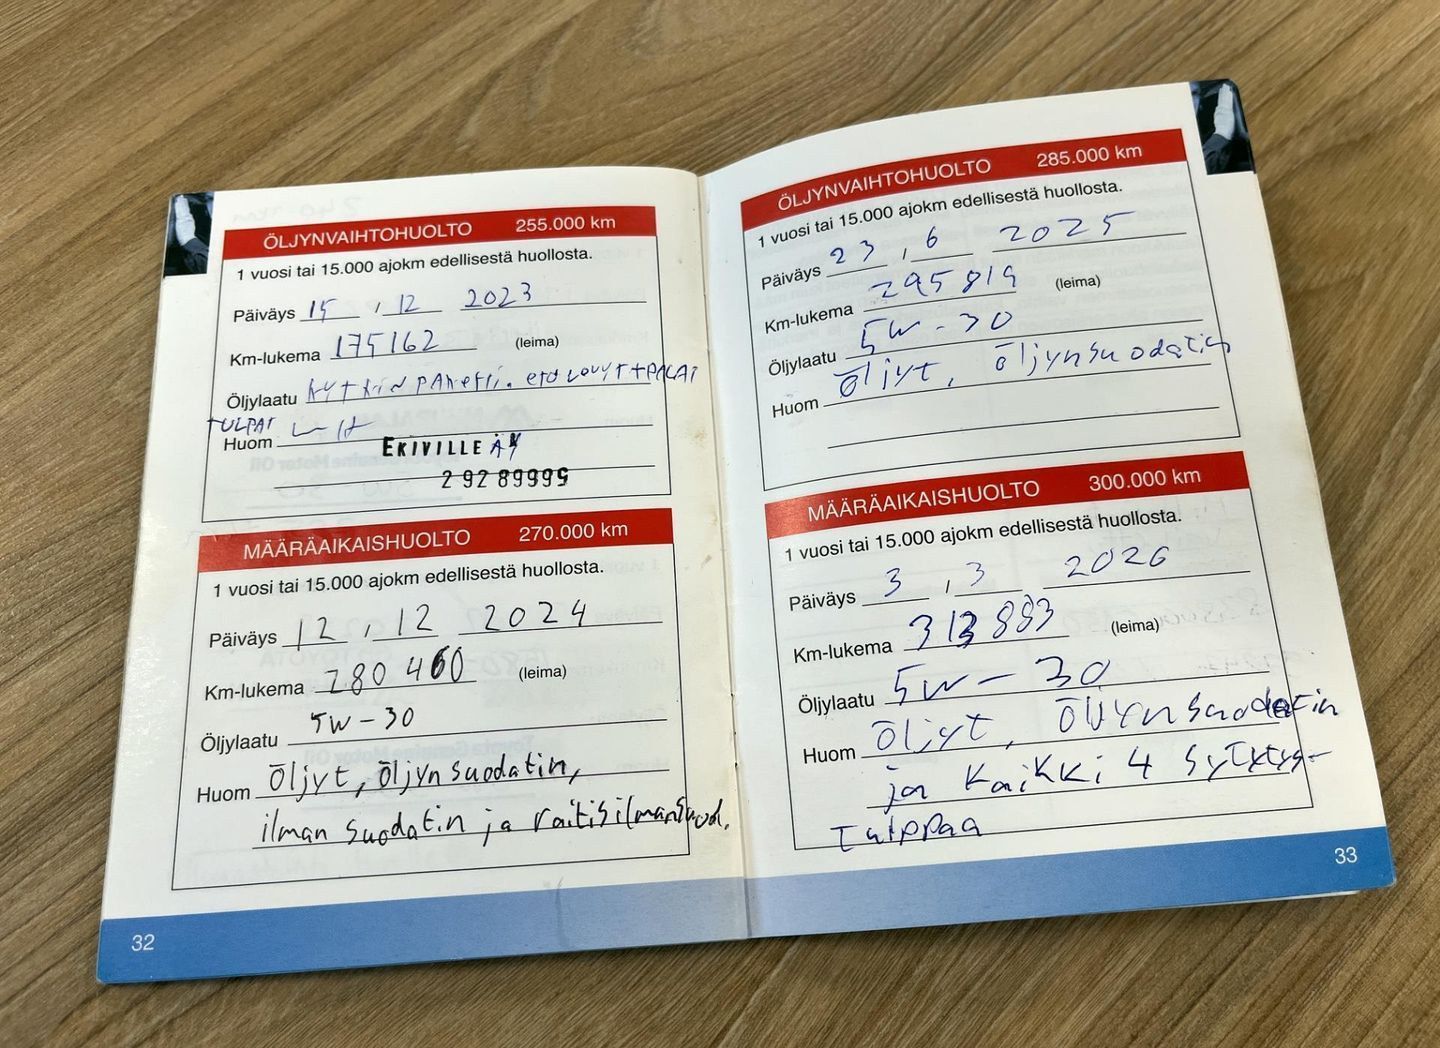 ÖLJYNVAIHTOHUOLTO 255.000 km
1 vuosi tai 15.000 ajokm edellisestä huollosta.
Päiväys 15 , 12 2023
Km-lukema 175162 (leima)
Öljylaatu KYTKIN PAKETTI. etu LEVYT + PALAT
TULPAT
Huom
EKIVILLE ÄY
2 92 89995
MÄÄRÄAIKAISHUOLTO 270.000 km
1 vuosi tai 15.000 ajokm edellisestä huollosta.
Päiväys 12 , 12 2024
Km-lukema 280 460 (leima)
Öljylaatu 5W-30
Huom Öljyt, öljynsuodatin,
ilman suodatin ja raitisilmansuod.
32
ÖLJYNVAIHTOHUOLTO 285.000 km
1 vuosi tai 15.000 ajokm edellisestä huollosta.
Päiväys 23 , 6 2025
Km-lukema 295819 (leima)
Öljylaatu 5W-30
Huom Öljyt, öljynsuodatin
MÄÄRÄAIKAISHUOLTO 300.000 km
1 vuosi tai 15.000 ajokm edellisestä huollosta.
Päiväys 3 , 3 2026
Km-lukema 313883 (leima)
Öljylaatu 5W-30
Huom Öljyt, öljynsuodatin
ja kaikki 4 sytytys-
tulppaa
33